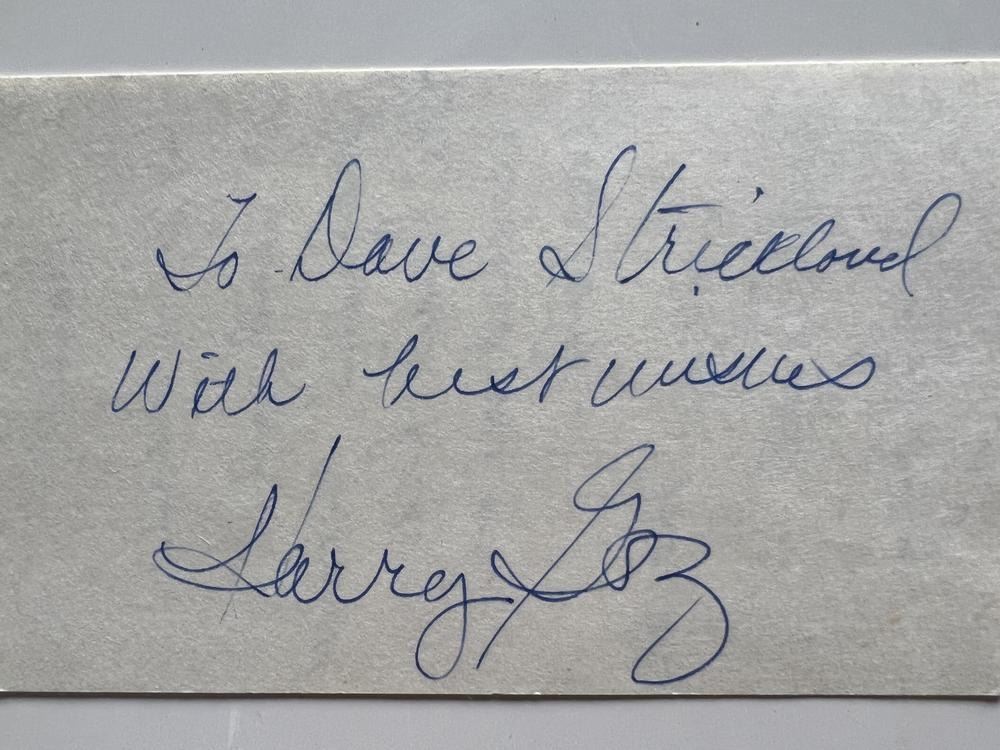 To Dave Strickland
With best wishes
Harry Goz